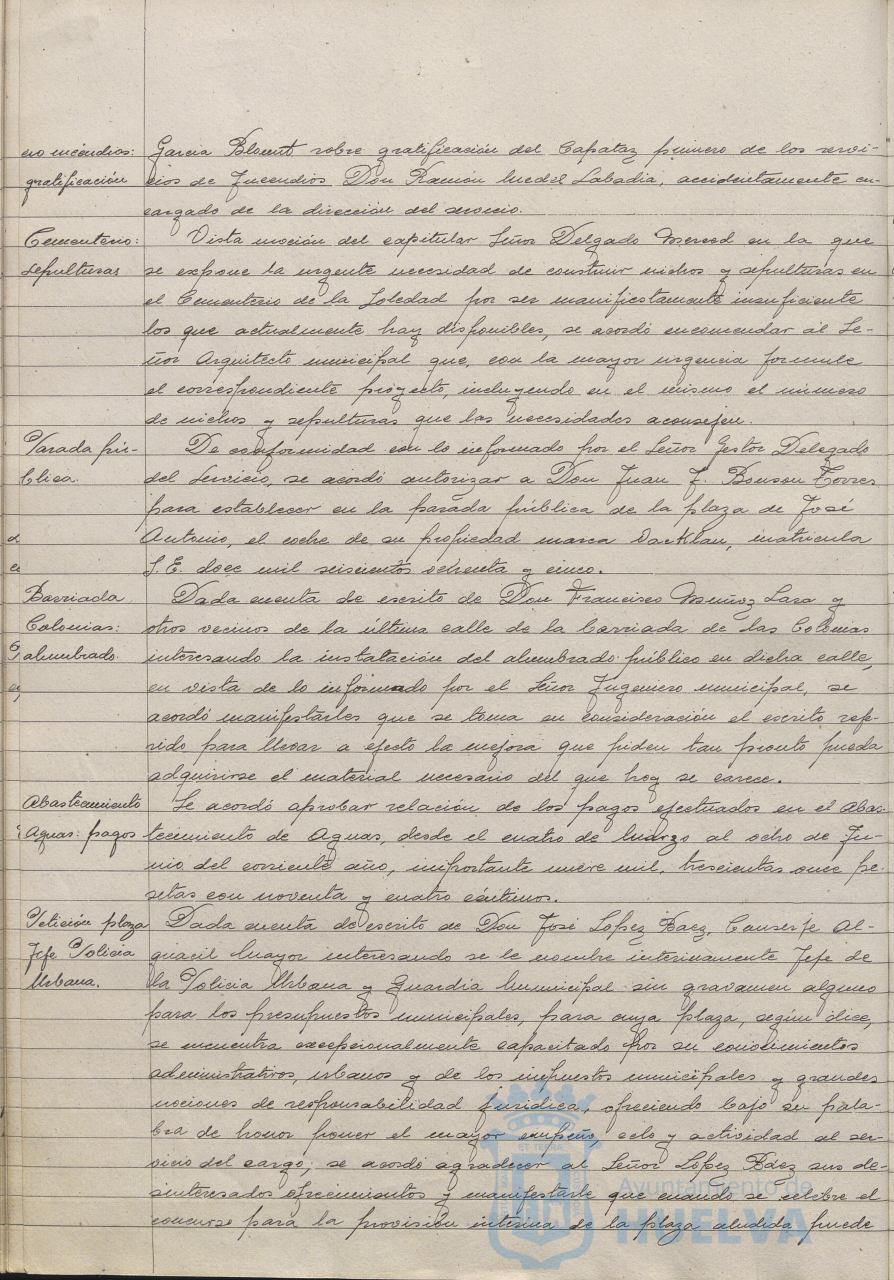 cio incendios:
gratificación
Garcia Blount sobre gratificación del Capataz primero de los servi-
cios de Incendios Don Ramón Medel Labadia, accidentamente en-
cargado de la dirección del servicio.
Cementerio:
sepulturas
Vista moción del capitular Señor Delgado Merced en la que
se expone la urgente necesidad de construir nichos y sepulturas en
el Cementerio de la Soledad por ser manifiestamente insuficiente
los que actualmente hay disponibles, se acordó encomendar al Se-
ñor Arquitecto municipal que, con la mayor urgencia formule
el correspondiente proyecto, incluyendo en el mismo el número
de nichos y sepulturas que las necesidades aconsejen.
Parada pú-
blica.
De conformidad con lo informado por el Señor Gestor Delegado
del Servicio, se acordó autorizar a Don Juan J. Bonson Torres
para establecer en la parada pública de la plaza de José
Antonio, el coche de su propiedad marca Packlan, matricula
S.E. doce mil seiscientos ochenta y cinco.
Barriada
Colonias:
alumbrado.
Dada cuenta de escrito de Don Francisco Muñoz Lara y
otros vecinos de la última calle de la barriada de las Colonias
interesando la instalación del alumbrado público en dicha calle,
en vista de lo informado por el Señor Ingeniero municipal, se
acordó manifestarles que se toma en consideración el escrito refe-
rido para llevar a efecto la mejora que piden tan pronto pueda
adquirirse el material necesario del que hoy se carece.
Abastecimiento
Aguas: pagos
Se acordó aprobar relación de los pagos efectuados en el Abas-
tecimiento de Aguas, desde el cuatro de Marzo al ocho de Ju-
nio del corriente año, importante nueve mil, trescientas once pe-
setas con noventa y cuatro céntimos.
Petición plaza
Jefe Policia
Urbana.
Dada cuenta de escrito de Don José Lopez Baez, Conserje Al-
guacil Mayor interesando se le nombre interinamente Jefe de
la Policia Urbana y Guardia Municipal sin gravamen alguno
para los presupuestos municipales, para cuya plaza, según dice,
se encuentra excepcionalmente capacitado por su conocimientos
administrativos, urbanos y de los impuestos municipales y grandes
nociones de responsabilidad juridica, ofreciendo bajo su pala-
bra de honor poner el mayor empeño, celo y actividad al ser-
vicio del cargo; se acordó agradecer al Señor López Báez sus de-
sinteresados ofrecimientos y manifestarle que cuando se celebre el
concurso para la provisión interina de la plaza aludida puede
Ayuntamiento de
HUELVA